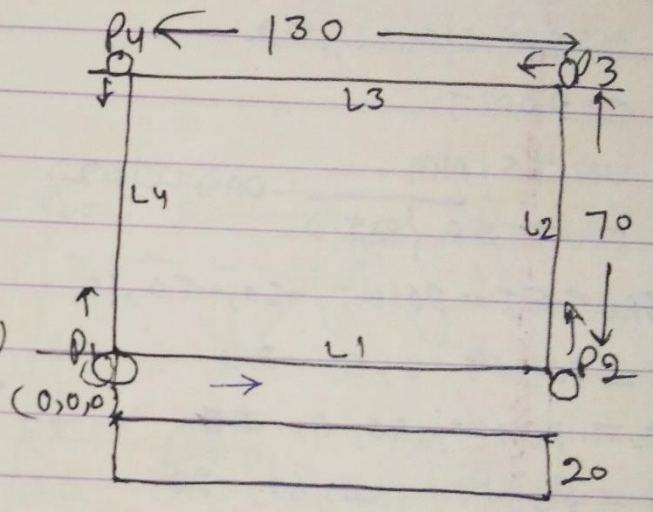 P4 130 P3
L3
L4
L2 70
P1 L1 P2
(0,0,0
20